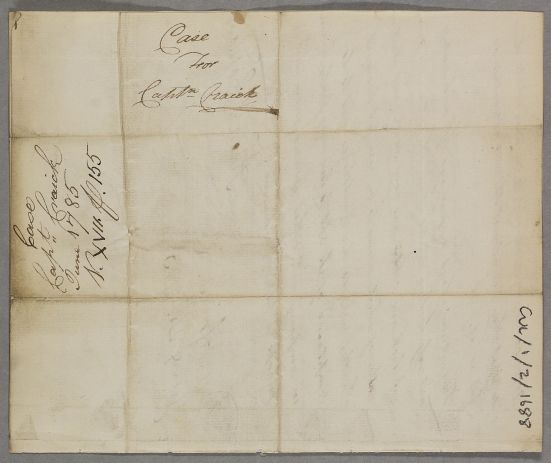 Case
For
Captn. Craick
Case
Capt. Craick
June 1785
N. XVII. p. 155
COL/1/2/1688